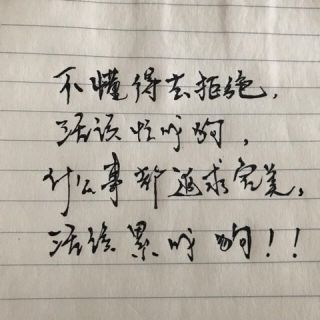 不懂得去拒绝,
活该忙成狗,
什么事都追求完美,
活该累成狗!!